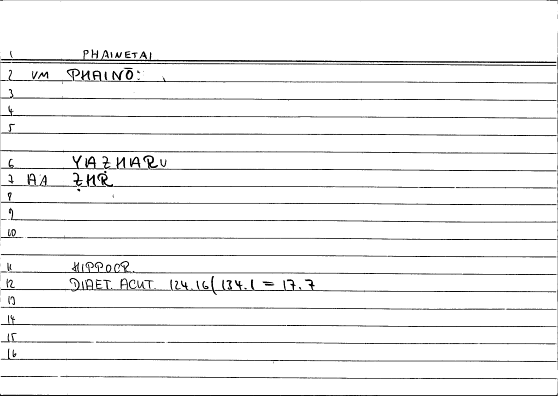 1 PHAINETAI
2 VM PHAINŌ:
3
4
5
6 YAẒHARU
7 AA ẒHR
8
9
10
11 HIPPOCR.
12 DIAET. ACUT. 124.16(134.1 = 17.7
13
14
15
16